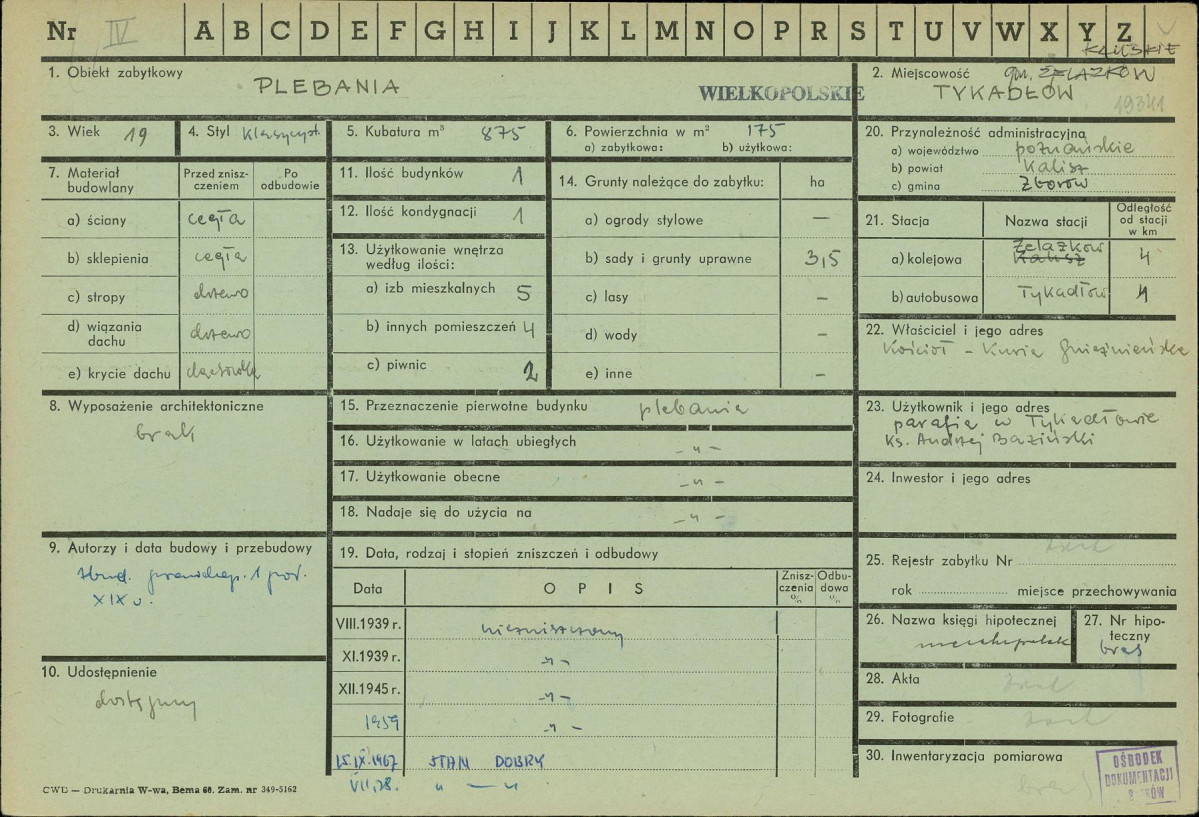 Nr IV A B C D E F G H I J K L M N O P R S T U V W X Y Z
KALISKIE
1. Obiekt zabytkowy
PLEBANIA
WIELKOPOLSKIE
2. Miejscowość gm. ŻELAZKÓW
TYKADŁÓW
3. Wiek 19
4. Styl klasycyst.
5. Kubatura m³ 875
6. Powierzchnia w m² 175
a) zabytkowa: b) użytkowa:
20. Przynależność administracyjna
a) województwo poznańskie
b) powiat Kalisz
c) gmina Zborów
7. Materiał budowlany
Przed zniszczeniem
Po odbudowie
a) ściany cegła
b) sklepienia cegła
c) stropy drzewo
d) wiązania dachu drzewo
e) krycie dachu dachówka
11. Ilość budynków 1
12. Ilość kondygnacji 1
13. Użytkowanie wnętrza
według ilości:
a) izb mieszkalnych 5
b) innych pomieszczeń 4
c) piwnic 2
14. Grunty należące do zabytku: ha
a) ogrody stylowe —
b) sady i grunty uprawne 3,5
c) lasy –
d) wody –
e) inne –
21. Stacja Nazwa stacji Odległość od stacji w km
a) kolejowa Żelazków Kalisz 4
b) autobusowa Tykadłów 4
22. Właściciel i jego adres
Kościół – Kuria Gnieźnieńska
8. Wyposażenie architektoniczne
brak
15. Przeznaczenie pierwotne budynku plebania
16. Użytkowanie w latach ubiegłych – " –
17. Użytkowanie obecne – " –
18. Nadaje się do użycia na – " –
23. Użytkownik i jego adres
parafia w Tykadłowie
Ks. Andrzej Baziński
24. Inwestor i jego adres
9. Autorzy i data budowy i przebudowy
zbud. prawdop. 1 poł.
XIX w.
10. Udostępnienie
dostępny
19. Data, rodzaj i stopień zniszczeń i odbudowy
Data OPIS Zniszczenia % Odbudowa %
VIII.1939 r. niezniszczony
XI.1939 r. – " –
XII.1945 r. – " –
1959 – " –
15.IX.1967 STAN DOBRY
VII.78. " — "
25. Rejestr zabytku Nr
rok miejsce przechowywania
26. Nazwa księgi hipotecznej
27. Nr hipoteczny
brak
28. Akta
29. Fotografie
30. Inwentaryzacja pomiarowa
brak
OŚRODEK
DOKUMENTACJI
CWD — Drukarnia W-wa, Bema 60. Zam. nr 349-5162